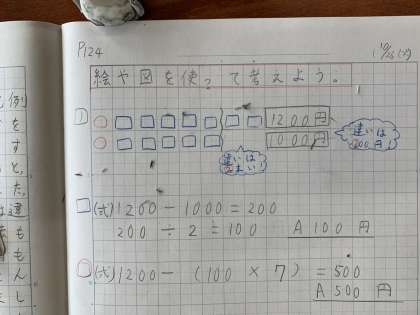 P124
絵や図を使って考えよう。
①
1200円
1000円
違いは
200円!
違いは
2まい!
□(式)1200-1000=200
200÷2=100 A 100円
○(式)1200-(100×7)=500
A 500円
例
を
す
と、
た。
は違
も
も
ん
し